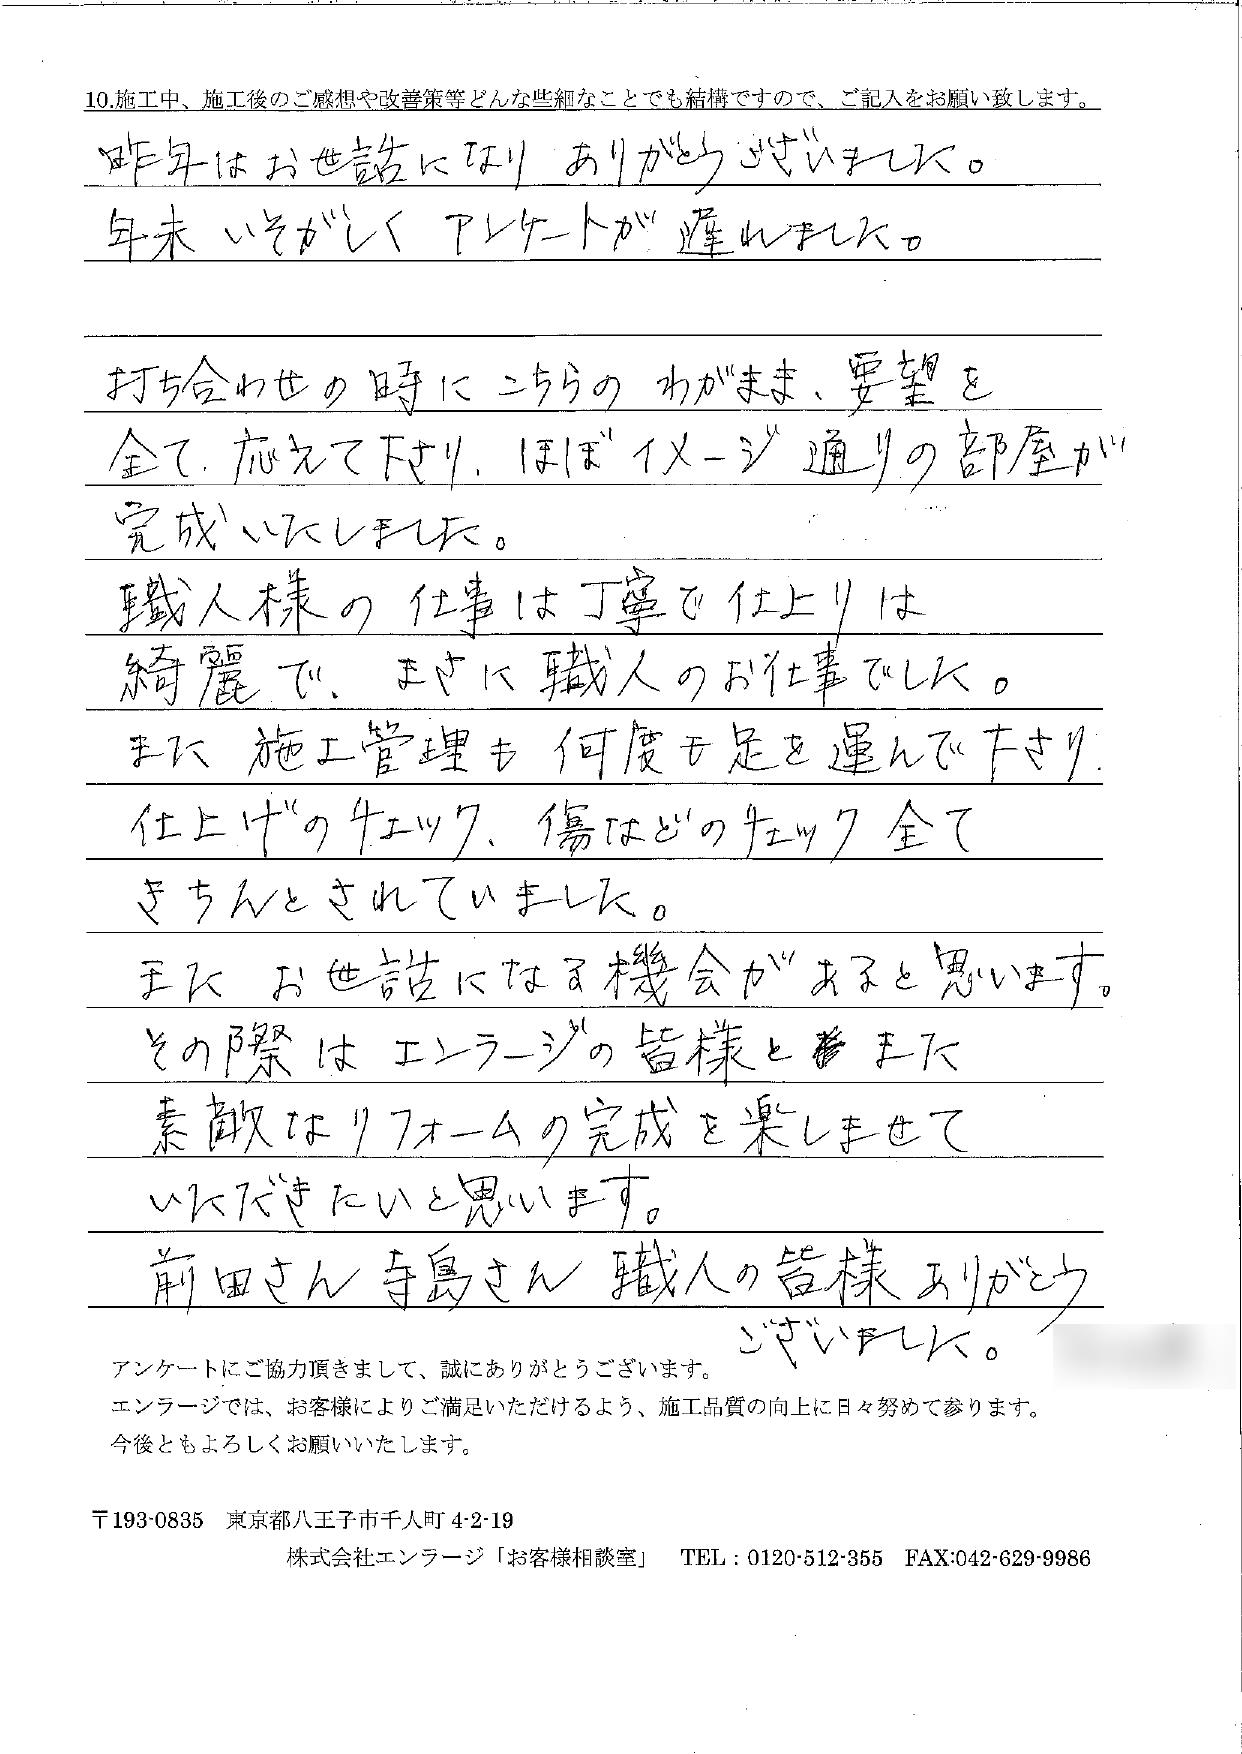 10.施工中、施工後のご感想や改善策等どんな些細なことでも結構ですので、ご記入をお願い致します。
昨年はお世話になり ありがとうございました。
年末 いそがしく アンケートが 遅れました。
打ち合わせの時に こちらの わがまま、要望を
全て、応えて下さり、ほぼイメージ通りの部屋が
完成いたしました。
職人様の 仕事は丁寧で仕上りは
綺麗で、まさに職人のお仕事でした。
また 施工管理も 何度も足を運んで下さり、
仕上げのチェック、傷などのチェック 全て
きちんとされていました。
また お世話になる機会があると思います。
その際は エンラージの皆様と また
素敵なリフォームの完成を楽しませて
いただきたいと思います。
前田さん 寺島さん 職人の皆様 ありがとう
ございました。
アンケートにご協力頂きまして、誠にありがとうございます。
エンラージでは、お客様によりご満足いただけるよう、施工品質の向上に日々努めて参ります。
今後ともよろしくお願いいたします。
〒193-0835 東京都八王子市千人町 4-2-19
株式会社エンラージ「お客様相談室」 TEL：0120-512-355 FAX:042-629-9986